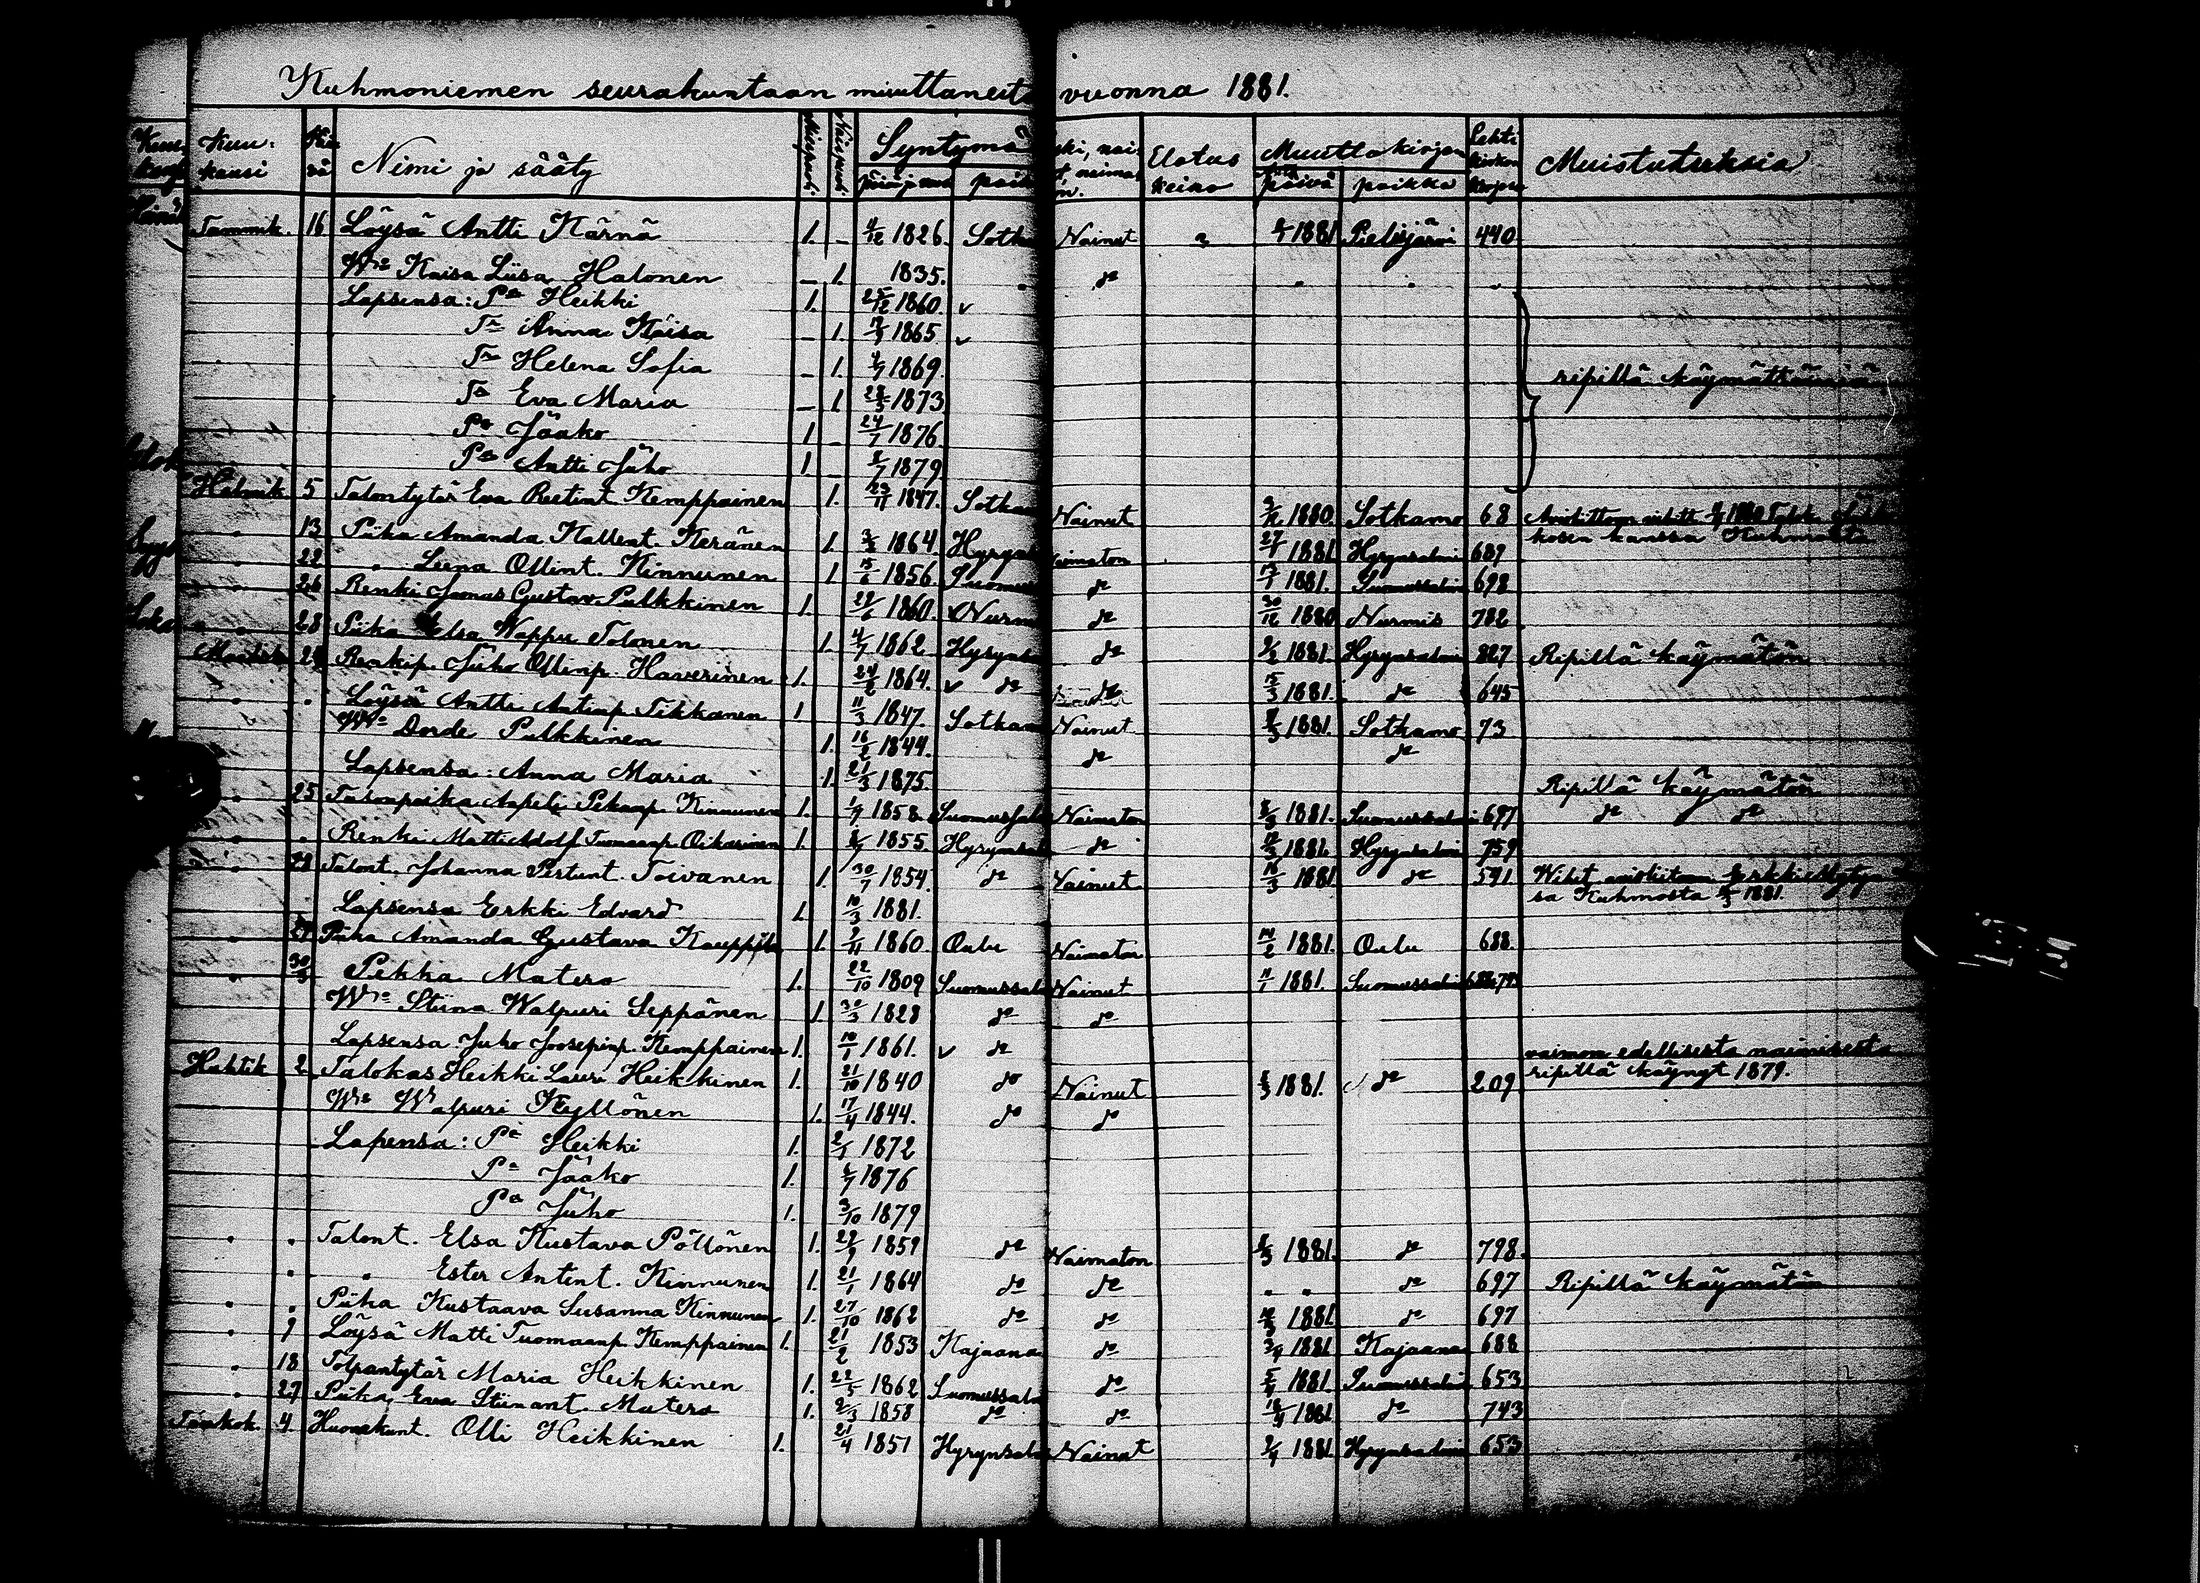 Kuhmoniemen seurakuntaan muuttaneita vuonna 1881.
Kuu-kausi Päivä Nimi ja sääty Miespuoli. Naispuoli. Syntymä päivä ja vuosi paik nai- naima- Elatus keino Muuttokirjan päivä paikka Lehti kirkon kirjassa Muistutuksia
Tammik. 16 Löysä Antti Kärnä 1. - 4/12 1826. Sotka Nainut 1881 Pielisjärvi 440
Wo Kaisa Liisa Halonen - 1. 1835. do
Lapsensa: Pa Heikki 1. 25/12 1860.
Tr Anna Kaisa - 1. 1865
Tr Helena Sofia - 1. 4/9 1869.
Tr Eva Maria - 1 1873 ripillä käymättömiä
Pa Jaako 1 - 24/7 1876.
Pa Antti Juho 1 - 1879.
Helmik 5 Talontytär Eva Reetint. Kemppainen 1. 23/11 1847. Sotkam Nainut 1880 Sotkamo 68
" 13 Piika Amanda Kallent. Keränen 1. 1864 Hyrynsa naimaton 27/1 1881. Hyrynsalmi 689 kosen kanssa Kuhmosta
" 22 " Leena Ollint. Kinnunen 1 15/6 1856. Suomus do 13/1 1881. Suomussalmi 698
" 26 Renki Joonas Gustav Pulkkinen 1. 22/6 1860. Nurm do 30/12 1880 Nurmis 782
" 28 Piika Elsa Wappu Tolonen 1. 4/7 1862 Hyrynsa do 1881. Hyrynsalmi 827 Ripillä käymätön
Maalisk Renkip. Juho Ollinp. Haverinen 1. 1864. do do 15/3 1881. do 645
" " Löysä Antti Antinp. Tikkanen 1 11/3 1847. Sotkam Nainut 1881. Sotkamo 73
Wo Dorde Pulkkinen 1. 16/2 1844. do do
Lapsensa: Anna Maria 1. 21/3 1875. Ripillä käymätön
" 25 Talonpoika Aapeli Pekanp. Kinnunen 1. 1858 Suomussal Naimaton 1881. Suomussalmi 697 do do
" " Renki Matti Adolf Tuomaanp. Oikarinen 1. 1855 Hyrynsal do 1881. Hyrynsalmi 759
" Talont. Johanna Pertunt. Toivanen 1. 30/7 1854. do Nainut 16/3 1881 do 591 Wiht. avioliitoon Erkki
Lapsensa Erkki Edvard 1. 10/3 1881. sa Kuhmosta 1881.
" Piika Amanda Gustava Kauppila 1. 9/11 1860. Oulu Naimaton 14/2 1881. Oulu 688.
" 30/3 Pekka Matero 1. 22/10 1809 Suomussal Nainut 11/1 1881. Suomussalmi
Wo Stiina Walpuri Seppänen 1. 30/3 1828 do do
Lapsensa Juho Joosepinp. Kemppainen 1. 10/1 1861. do vaimon edellisestä naimisesta
Huhtik 2 Talokas Heikki Lauri Heikkinen 1. 21/10 1840 do Nainut 1881. do 209 ripillä käynyt 1879.
Wo Walpuri Kyllönen 1. 17/4 1844. do do
Lapensa: Pa Heikki 1. 2/1 1872
Pa Jaako 1. 1876
Pa Juho 1. 3/10 1879
" " Talont. Elsa Kustava Pöllönen 1. 1859 do Naimaton 1881. do 798.
" " Ester Antint. Kinnunen 1. 21/1 1864 do do " " do 697 Ripillä käymätön
" " Piika Kustaava Susanna Kinnunen 1. 27/10 1862 do do 1881. do 697
" 9 Löysä Matti Tuomaanp. Kemppainen 1. 21/2 1853 Kajaana do 1881 Kajaana 688
" 18 Torpantytär Maria Heikkinen 1. 22/5 1862 Suomussalm do 5/4 1881. Suomussalmi 653
" 27 Piika Eva Stiinant. Matero 1. 2/3 1858 do do 18/4 1881. do 743
Toukok. 4. Huonekunt. Olli Heikkinen 1. 21/4 1851 Hyrynsalm Nainut 1881. Hyrynsalmi 653